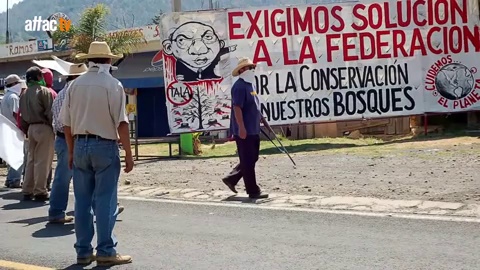 attac
TV
"Ramas"
EXIGIMOS SOLUCION
A LA FEDERACION
POR LA CONSERVACIÓN
NUESTROS BOSQUES
TALA
CUIDEMOS
EL PLANETA